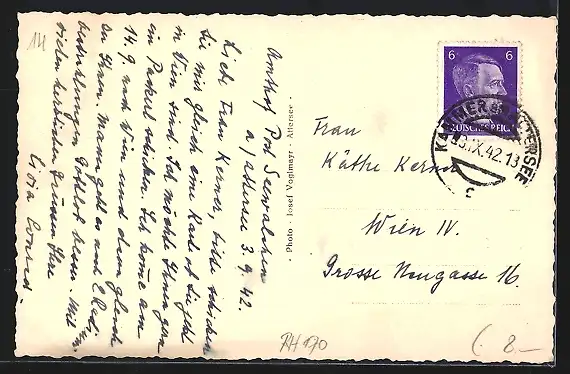 Amthof Post Seewalchen
a/ Attersee 3. 9. 42.
Liebe Frau Kerner, bitte schreiben
Sie mir gleich eine Karte ob Sie jetzt
in Wien sind. Ich möchte Ihnen gern
ein Packerl schicken. Ich komme am
14. 9. nach Wien und dann gleich
zu Ihnen. Mama geht es nach 2 Rad.
bestrahlungen Gottlob besser. Mit
vielen herzlichen Grüssen Ihre
Photo - Josef Voglmayr - Attersee -
6 6
DEUTSCHES REICH
KAMMER ATTERSEE
3.IX.42.13
c
Frau
Käthe Kerner
Wien IV.
Grosse Neugasse 16
RH170
8.-